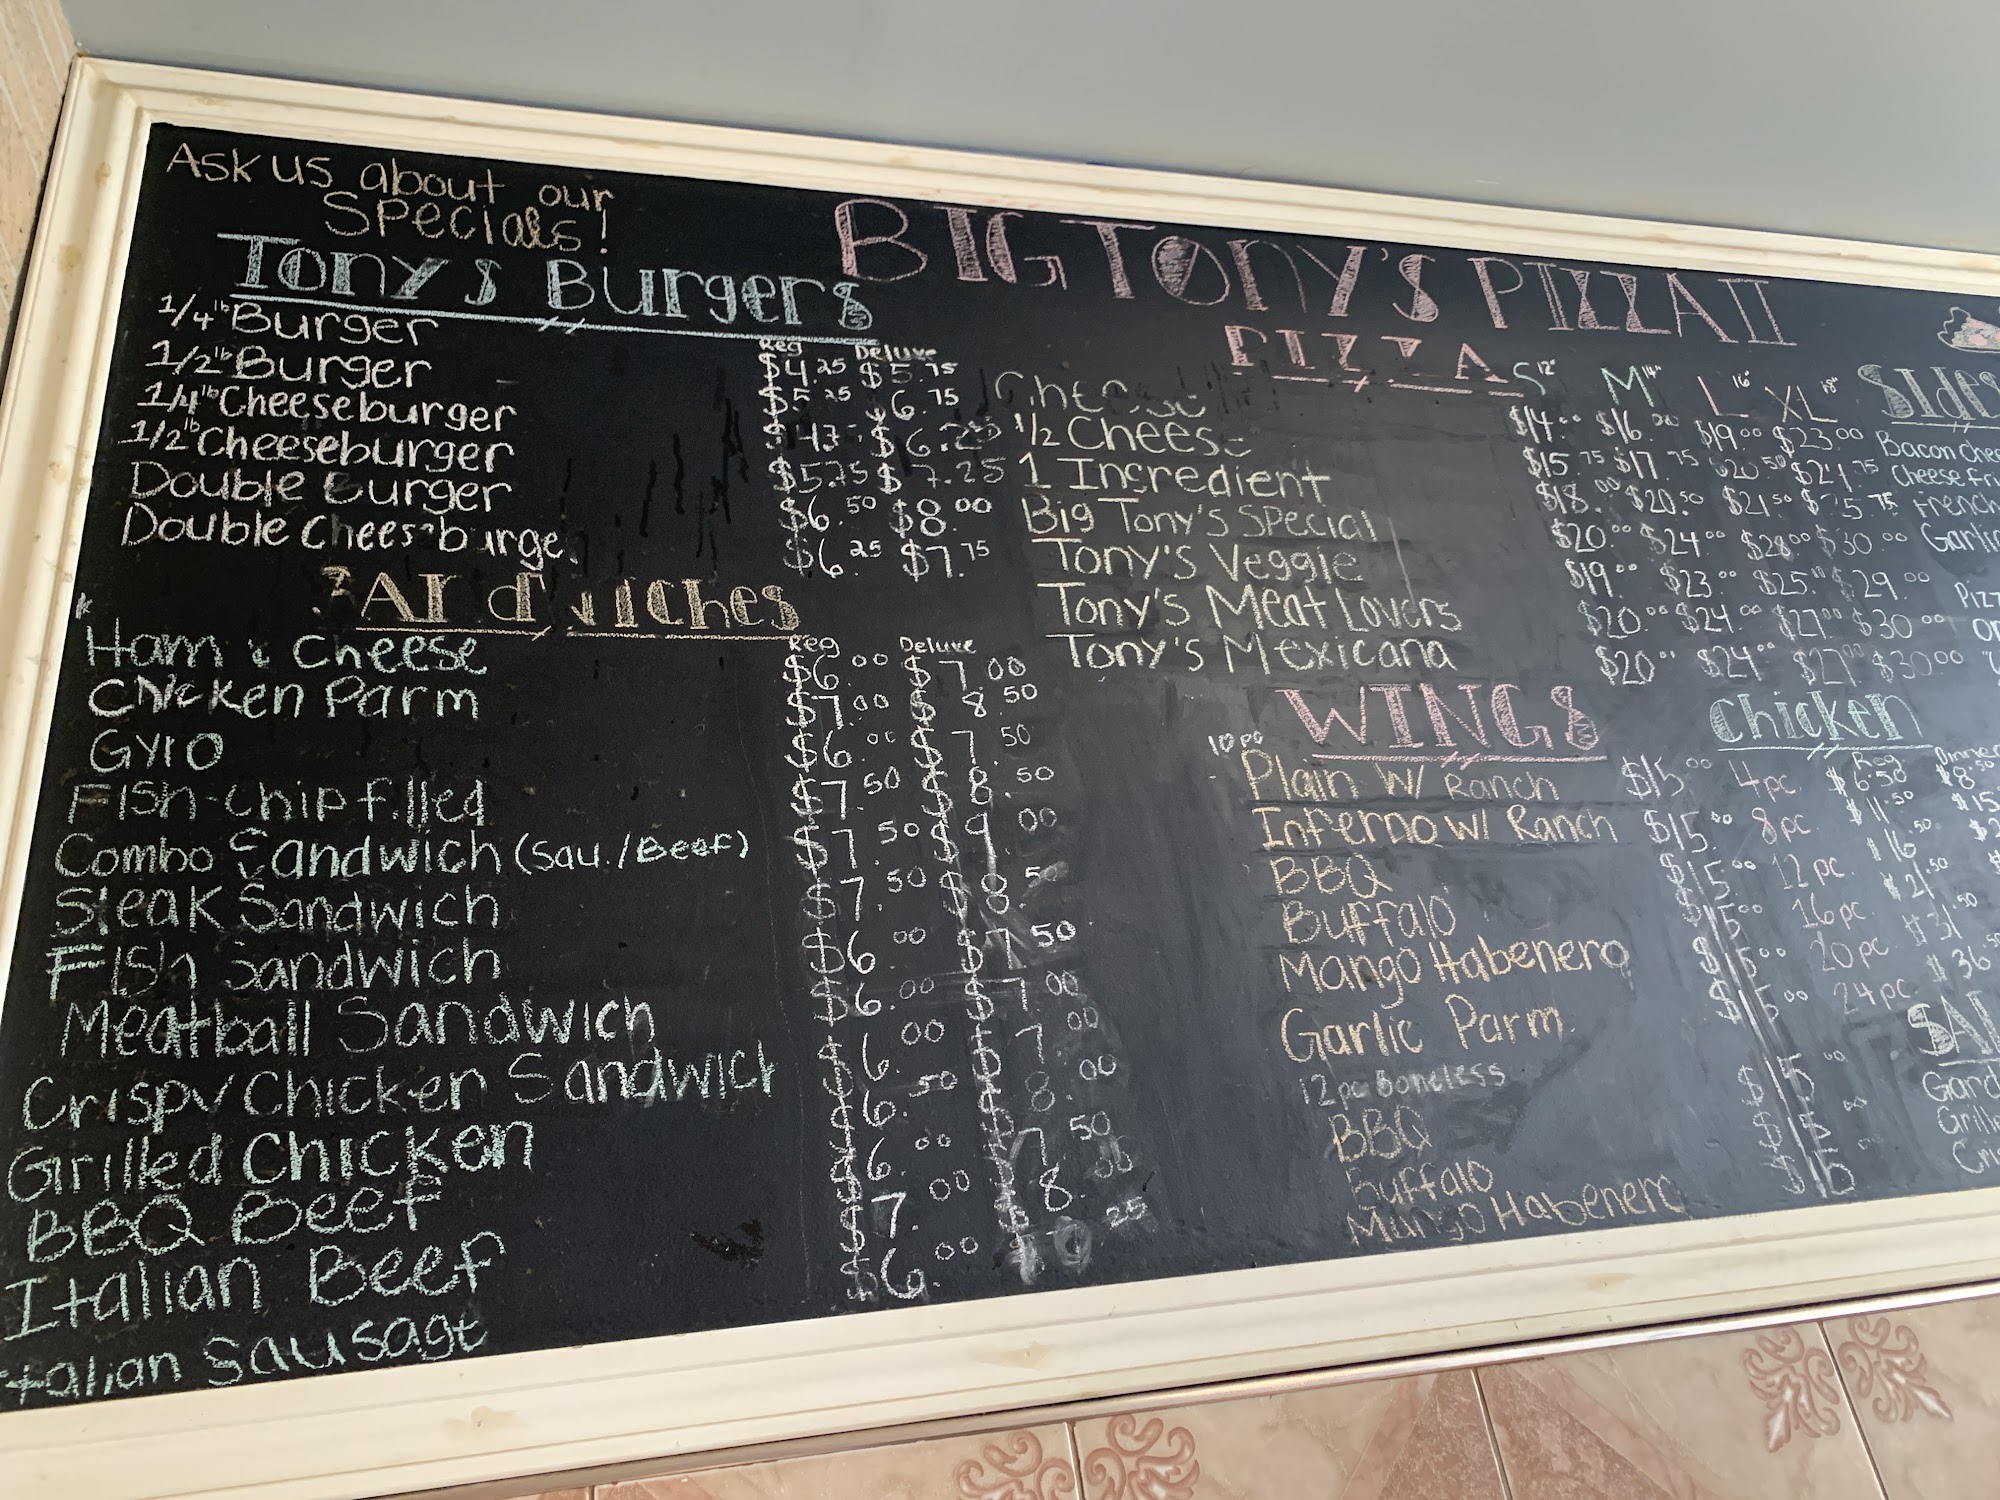 Ask us about our
Specials!
Tony's Burgers
Reg Deluxe
1/4 lb Burger $4.25 $5.75
1/2 lb Burger $5.25 $6.75
1/4 lb Cheeseburger $6.25
1/2 lb Cheeseburger $5.75 $7.25
Double Burger $6.50 $8.00
Double Cheeseburger $6.25 $7.75
Sandwiches
Reg Deluxe
Ham & Cheese $6.00 $7.00
Chicken Parm $7.00 $8.50
Gyro $6.00 $7.50
Fish-chip filled $7.50 $8.50
Combo Sandwich (Sau./Beef) $7.50 $9.00
Steak Sandwich $7.50 $8.50
Fish Sandwich $6.00 $7.50
Meatball Sandwich $6.00 $7.00
Crispy Chicken Sandwich $6.00 $7.00
Grilled Chicken $6.50 $8.00
BBQ Beef $6.00 $7.50
Italian Beef $7.00 $8.
Italian Sausage $6.00
BIG TONY'S PIZZA II
PIZZA
S 12" M 14" L 16" XL 18"
Cheese $14.00 $16. $19.00 $23.00
1/2 Cheese $15.75 $17.75 $20.50 $24.75
1 Ingredient $18.00 $20.50 $21.50 $ 5.75
Big Tony's Special $20.00 $24.00 $28.00 $30.00
Tony's Veggie $19.00 $23.00 $25. $29.00
Tony's Meat Lovers $20.00 $24.00 $27.00 $30.00
Tony's Mexicana $20 $24 $27.00 $30.00
WINGS
10 pc
Plain W/ Ranch $15.00
Inferno W/ Ranch $15.00
BBQ $15.00
Buffalo $15.00
Mango Habenero $15.00
Garlic Parm $15.00
12 pc Boneless
BBQ $15.00
Buffalo $15.00
Mango Habenero $15
Chicken
Reg Dinner
4 pc. $6.50 $8.50
8 pc. $11.50 $15
12 pc. $16.50
16 pc. $21.50
20 pc. $31.50
24 pc. $36.50
Sides
Bacon Chee
Cheese Fri
French
Garlic
Pizz
Or
SAL
Gard
Grille
Cris